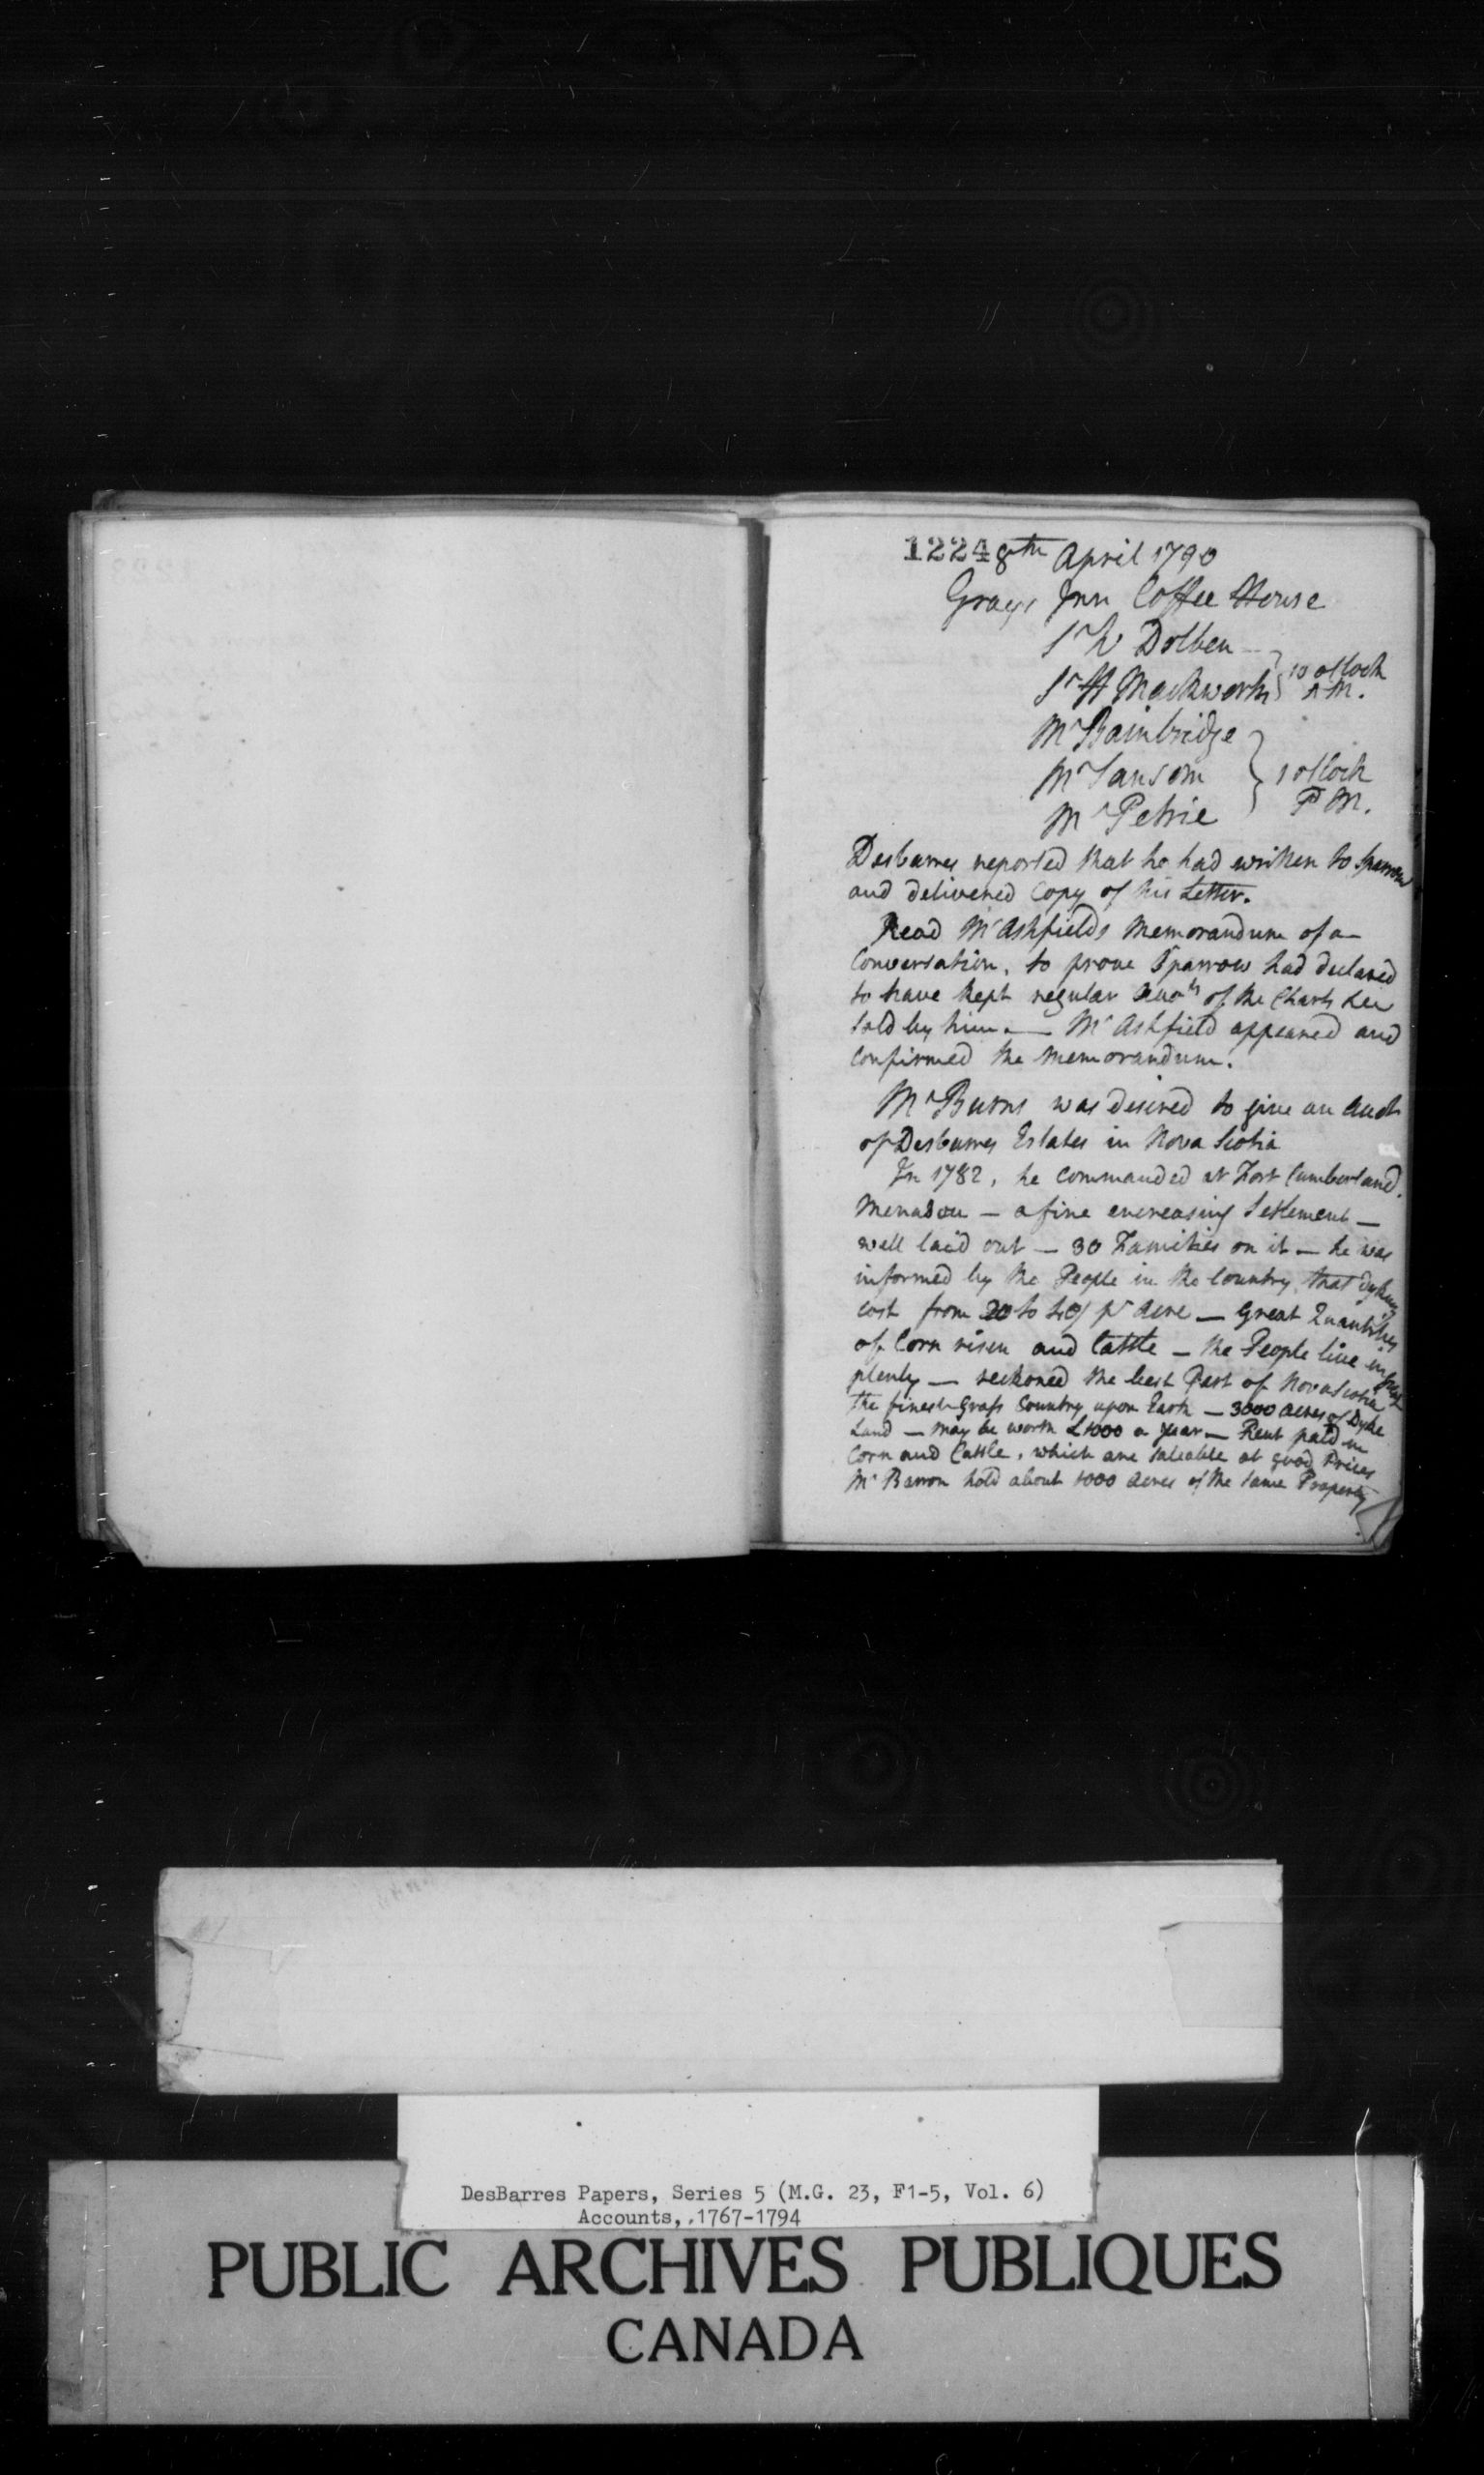 1224 8th April 1790
Grays Inn Coffee House
Sr W Dolben
Sr H Mackworth } 10 oClock A M.
Mr Bainbridge
Mr Sansom } 1 oClock
Mr Petrie P M.
Desbarres reported that he had written to Sparrow
and delivered Copy of his Letter.
Read Mr Ashfields Memorandum of a
Conversation, to prove Sparrow had declared
to have kept regular Accots of the Charts &ca
sold by him. — Mr Ashfield appeared and
confirmed the Memorandum.
Mr Burns was desired to give an Acct
of Desbarres Estates in Nova Scotia
In 1782, he commanded at Fort Cumberland.
— a fine encreasing Settlement —
well laid out — 30 Families on it — he was
informed by the People in the Country, that dyking
cost from 20 to 40/ pr Acre — Great Quantities
of Corn risen and Cattle — the People live in great
plenty — reckoned the best Part of Nova Scotia
the finest Grass Country upon Earth — 3000 Acres of Dyke
Land — may be worth £1000 a year — Rent paid in
Corn and Cattle, which are saleable at good Prices
Mr Barron hold about 1000 Acres of the same Property
DesBarres Papers, Series 5 (M.G. 23, F1-5, Vol. 6)
Accounts, 1767-1794
PUBLIC ARCHIVES PUBLIQUES
CANADA